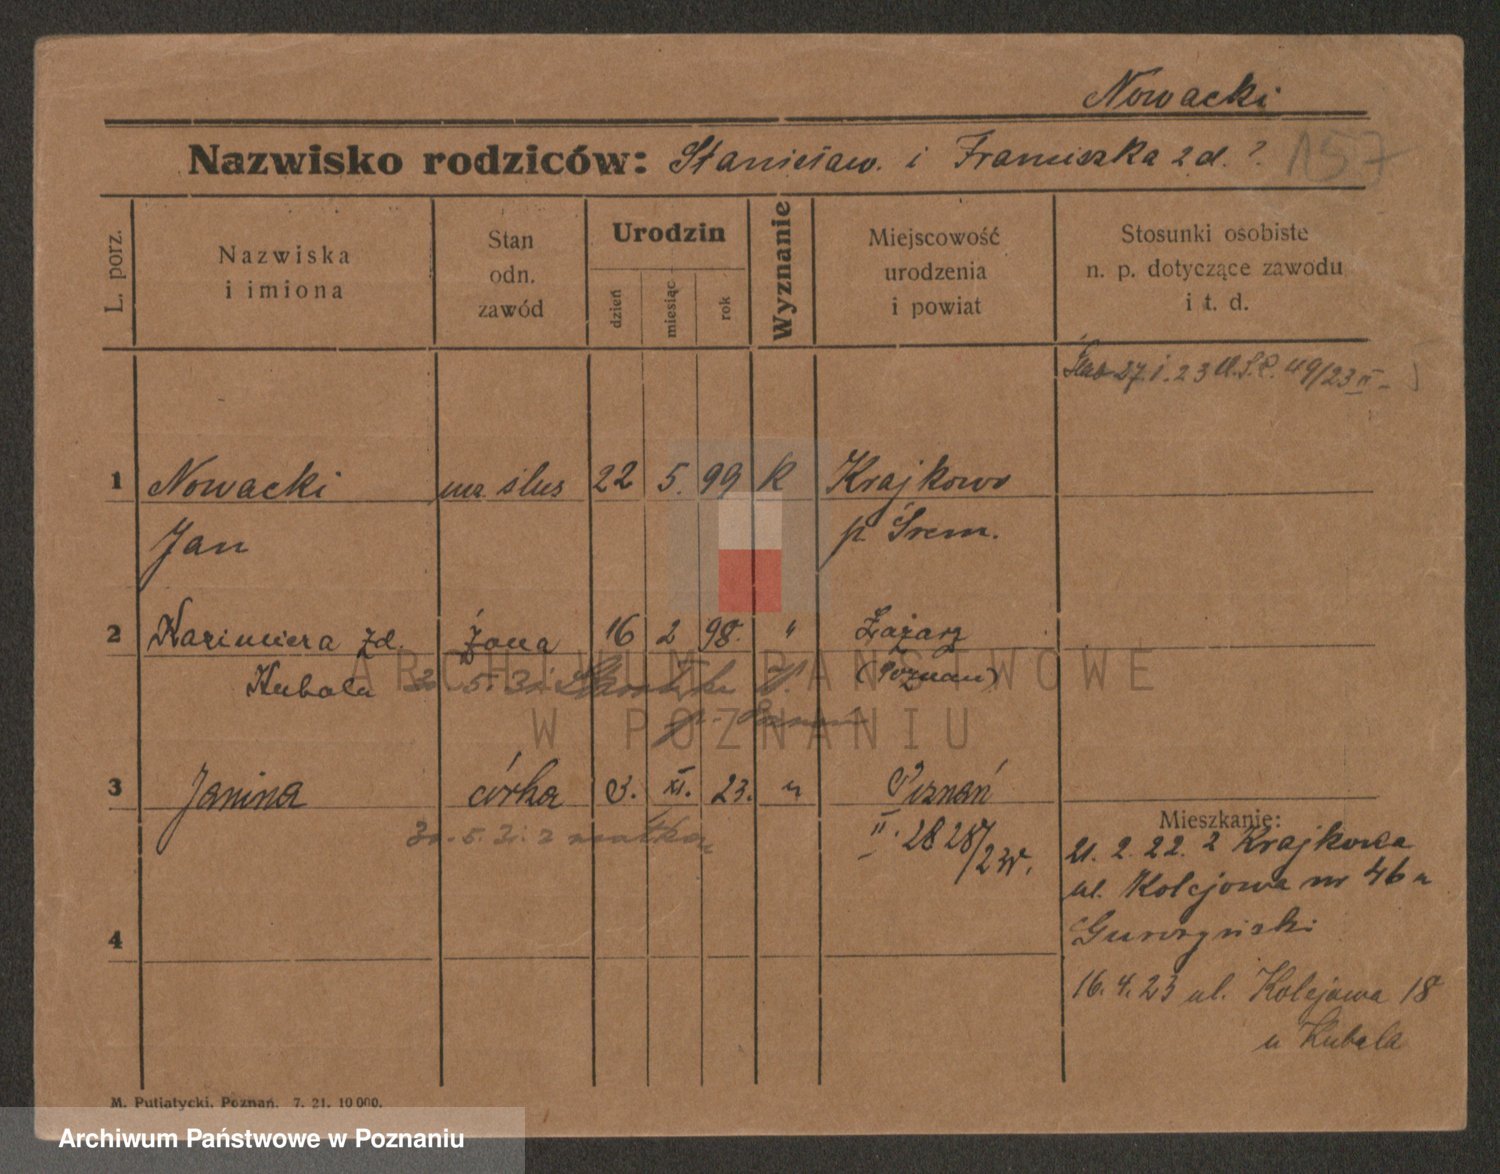 Nowacki
Nazwisko rodziców: Stanisław. i Franciszka zd. ?. 157
L. porz.
Nazwiska i imiona
Stan odn. zawód
Urodzin
dzień
miesiąc
rok
Wyznanie
Miejscowość urodzenia i powiat
Stosunki osobiste n. p. dotyczące zawodu i t. d.
27.1.23 U.S.C. 49/23 II
1 Nowacki ślus 22 5. 99 k Krajkowo
Jan p. Śrem.
2 Kazimiera zd. żona 16 2 98. " Łazarz
Kubala (Poznań)
3 Janina córka 3. XI. 23. " Poznań
30.5.31. z matką
II. 2828/23r.
Mieszkanie:
21. 2. 22. z Krajkowa
ul. Kolejowa nr 46 u
16. 4. 23 ul. Kolejowa 18
u Kubala
4
ARCHIWUM PAŃSTWOWE
W POZNANIU
M. Putiatycki, Poznań, 7. 21. 10 000.
Archiwum Państwowe w Poznaniu